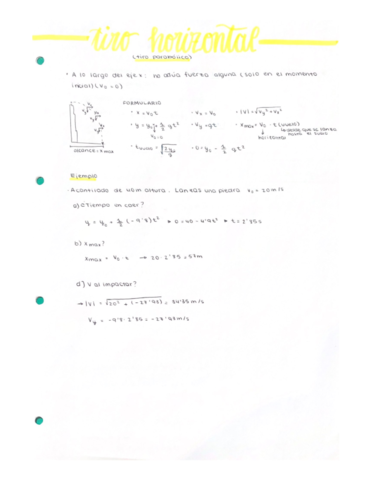 tiro horizontal
(tiro parabólico)
· A lo largo del eje x: no actúa fuerza alguna (solo en el momento
inicial) (V₀ = 0)
FORMULARIO
· x = v₀t · Vx = V₀ · |V| = √Vy² + Vx²
· y = y₀ + ½ gt² · Vy = gt · Xmax = V₀ · t (vuelo)
V₀ = 0
horizontal
alcance = x max · t vuelo = √2y₀/g · 0 = y₀ - ½ gt²
Ejemplo
Acantilado de 40m altura. Lanzas una piedra V₀ = 20 m/s
a) ¿Tiempo en caer?
y = y₀ + ½ (-9'8)t² → 0 = 40 - 4'9t² → t = 2'85s
b) Xmax?
Xmax = V₀ · t → 20 · 2'85 = 57m
d) V al impactar?
→ |V| = √20² + (-27'93)² = 34'35 m/s
Vy = -9'8 · 2'85 = -27'93 m/s